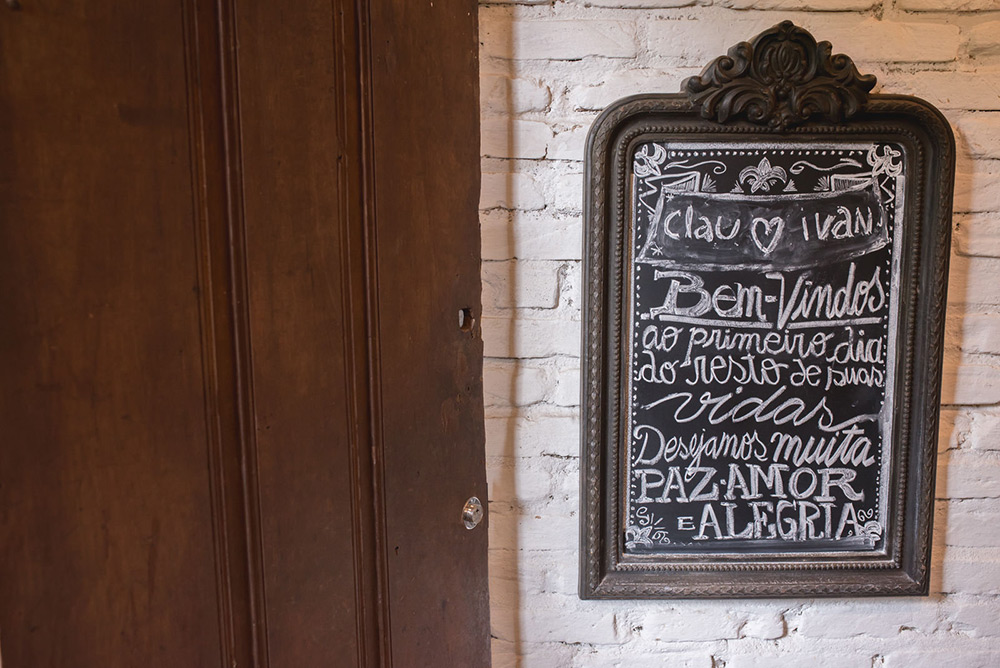 Clau ♡ Ivan
Bem-Vindos
ao primeiro dia
do resto de suas
vidas
Desejamos muita
PAZ·AMOR
E ALEGRIA